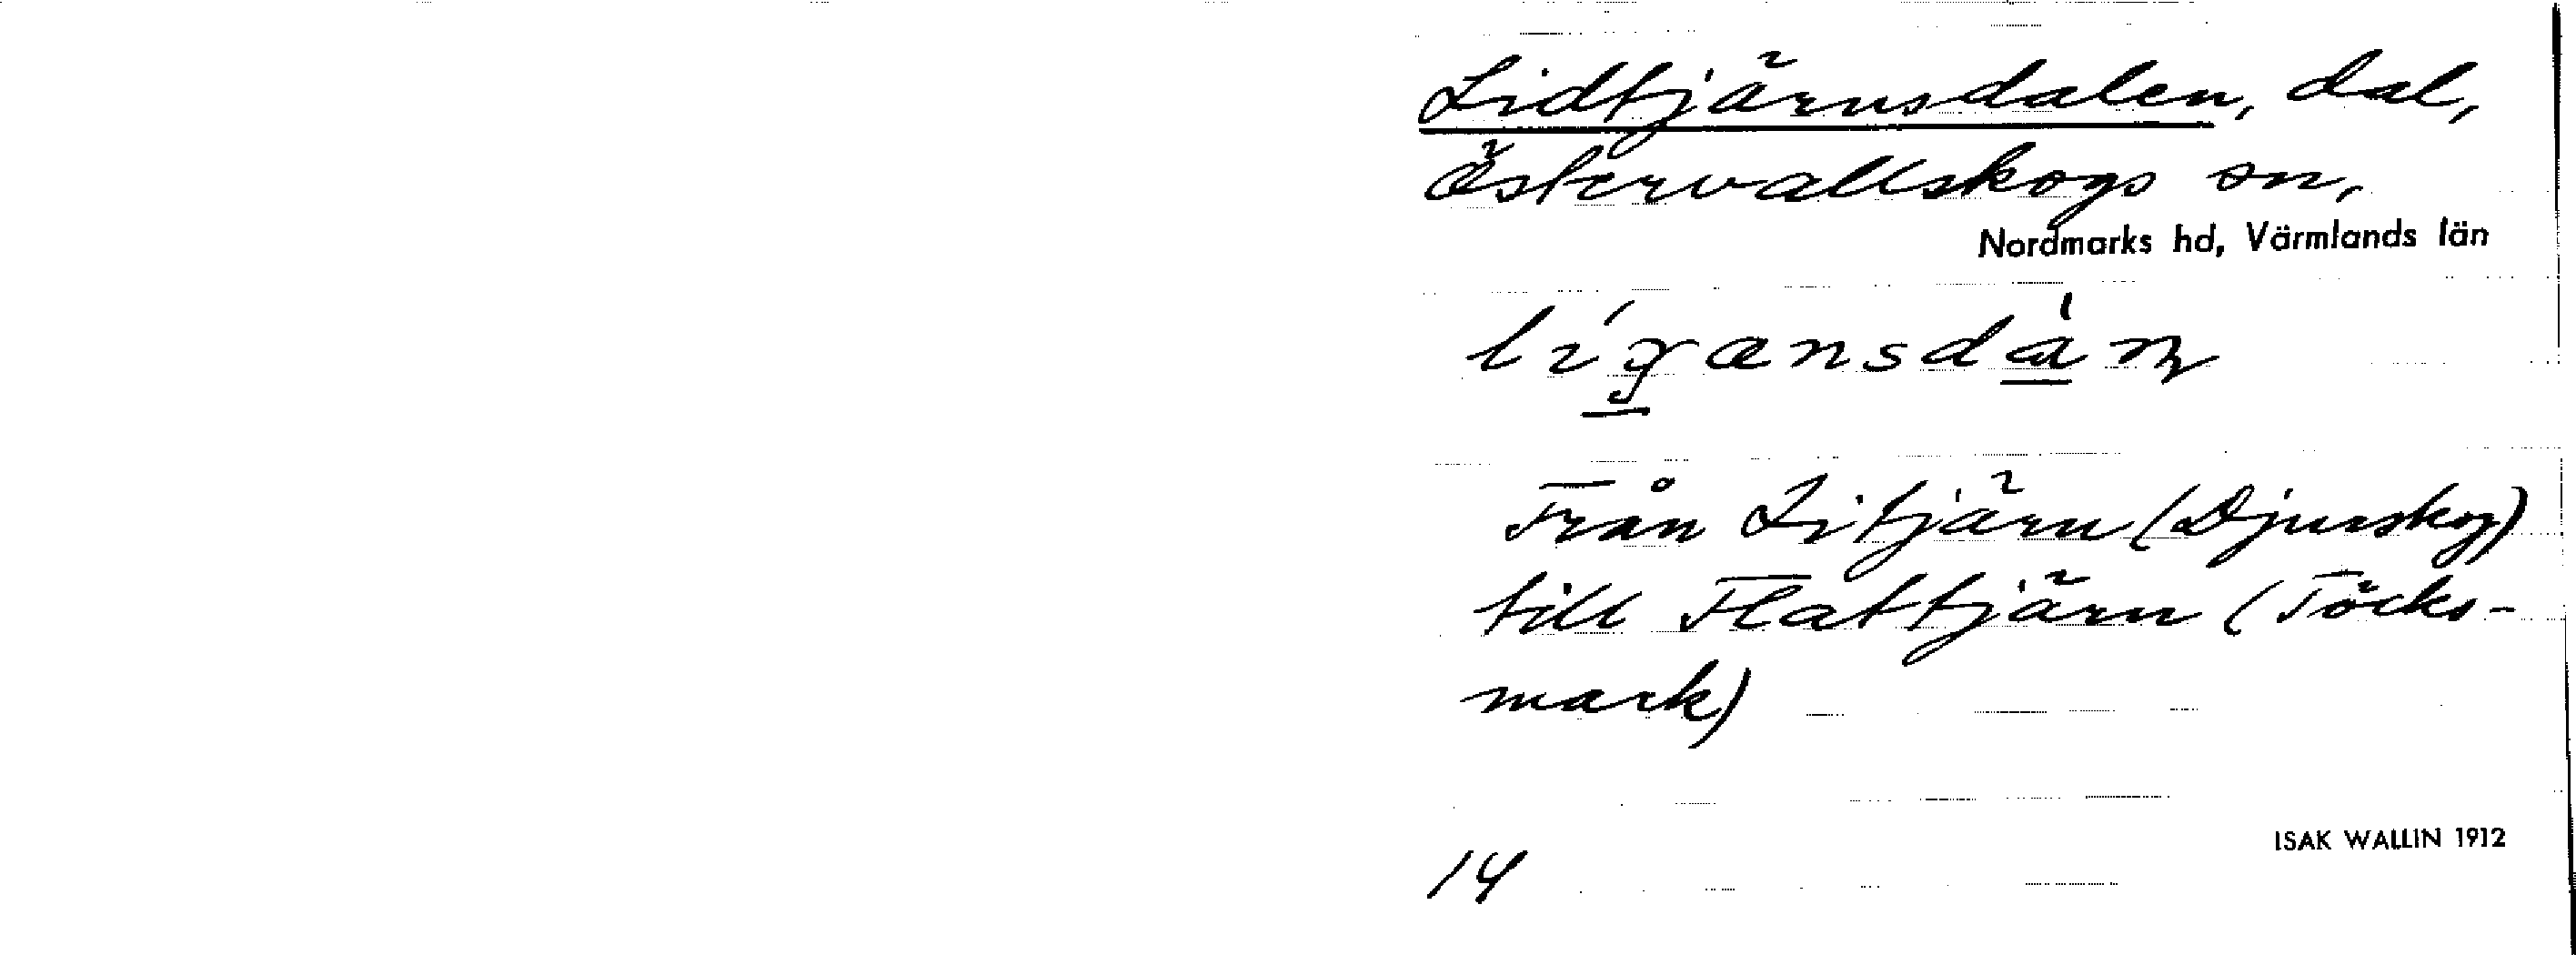 Lidtjärnsdalen, dal,
Östervallskogs sn,
Nordmarks hd, Värmlands län
Från Litjärn (Djurskog)
till Flattjärn (Töcks-
mark)
ISAK WALLIN 1912
14